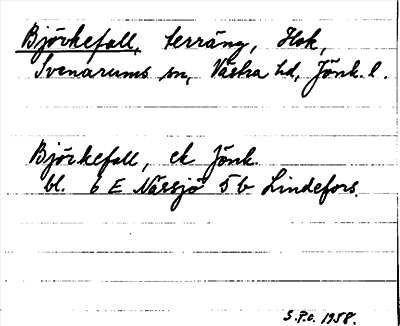 Björkefall, terräng, Hok,
Svenarums sn, Västra hd, Jönk. l.
Björkefall, ek Jönk.
bl. 6 E Nässjö 5 b Lindefors.
S.P.O. 1958.